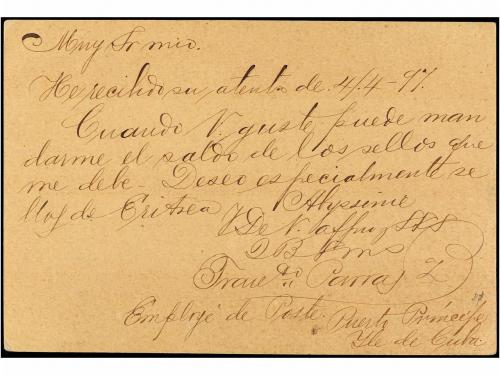 Muy Sr mio.
He recibido su atenta de 4/4-97.
Cuando V. guste puede man
darme el saldo de los sellos que
me debe - Deseo especialmente se
llos de Eritrea y Abyssinie
De V. affmo S S S
Q B S m s
Parra
Employé de Poste. Puerto Príncipe
Ile de Cuba